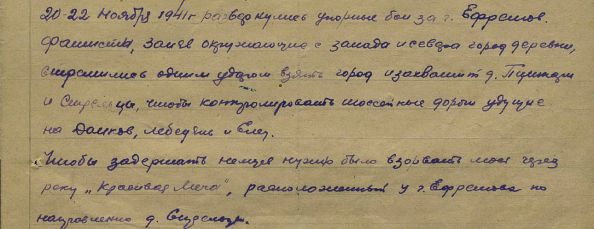 20-22 Ноября 1941г развернулись упорные бои за г. Ефремов.
Фашисты, заняв окружающие с запада и севера город деревни,
стремились одним ударом взять город и захватить д.
и Стрельцы, чтобы контролировать шоссейные дороги идущие
на Данков, Лебедянь и Елец.
Чтобы задержать немцев нужно было взорвать мост через
реку "Красивая Меча", расположенный у г. Ефремова по
направлению д.